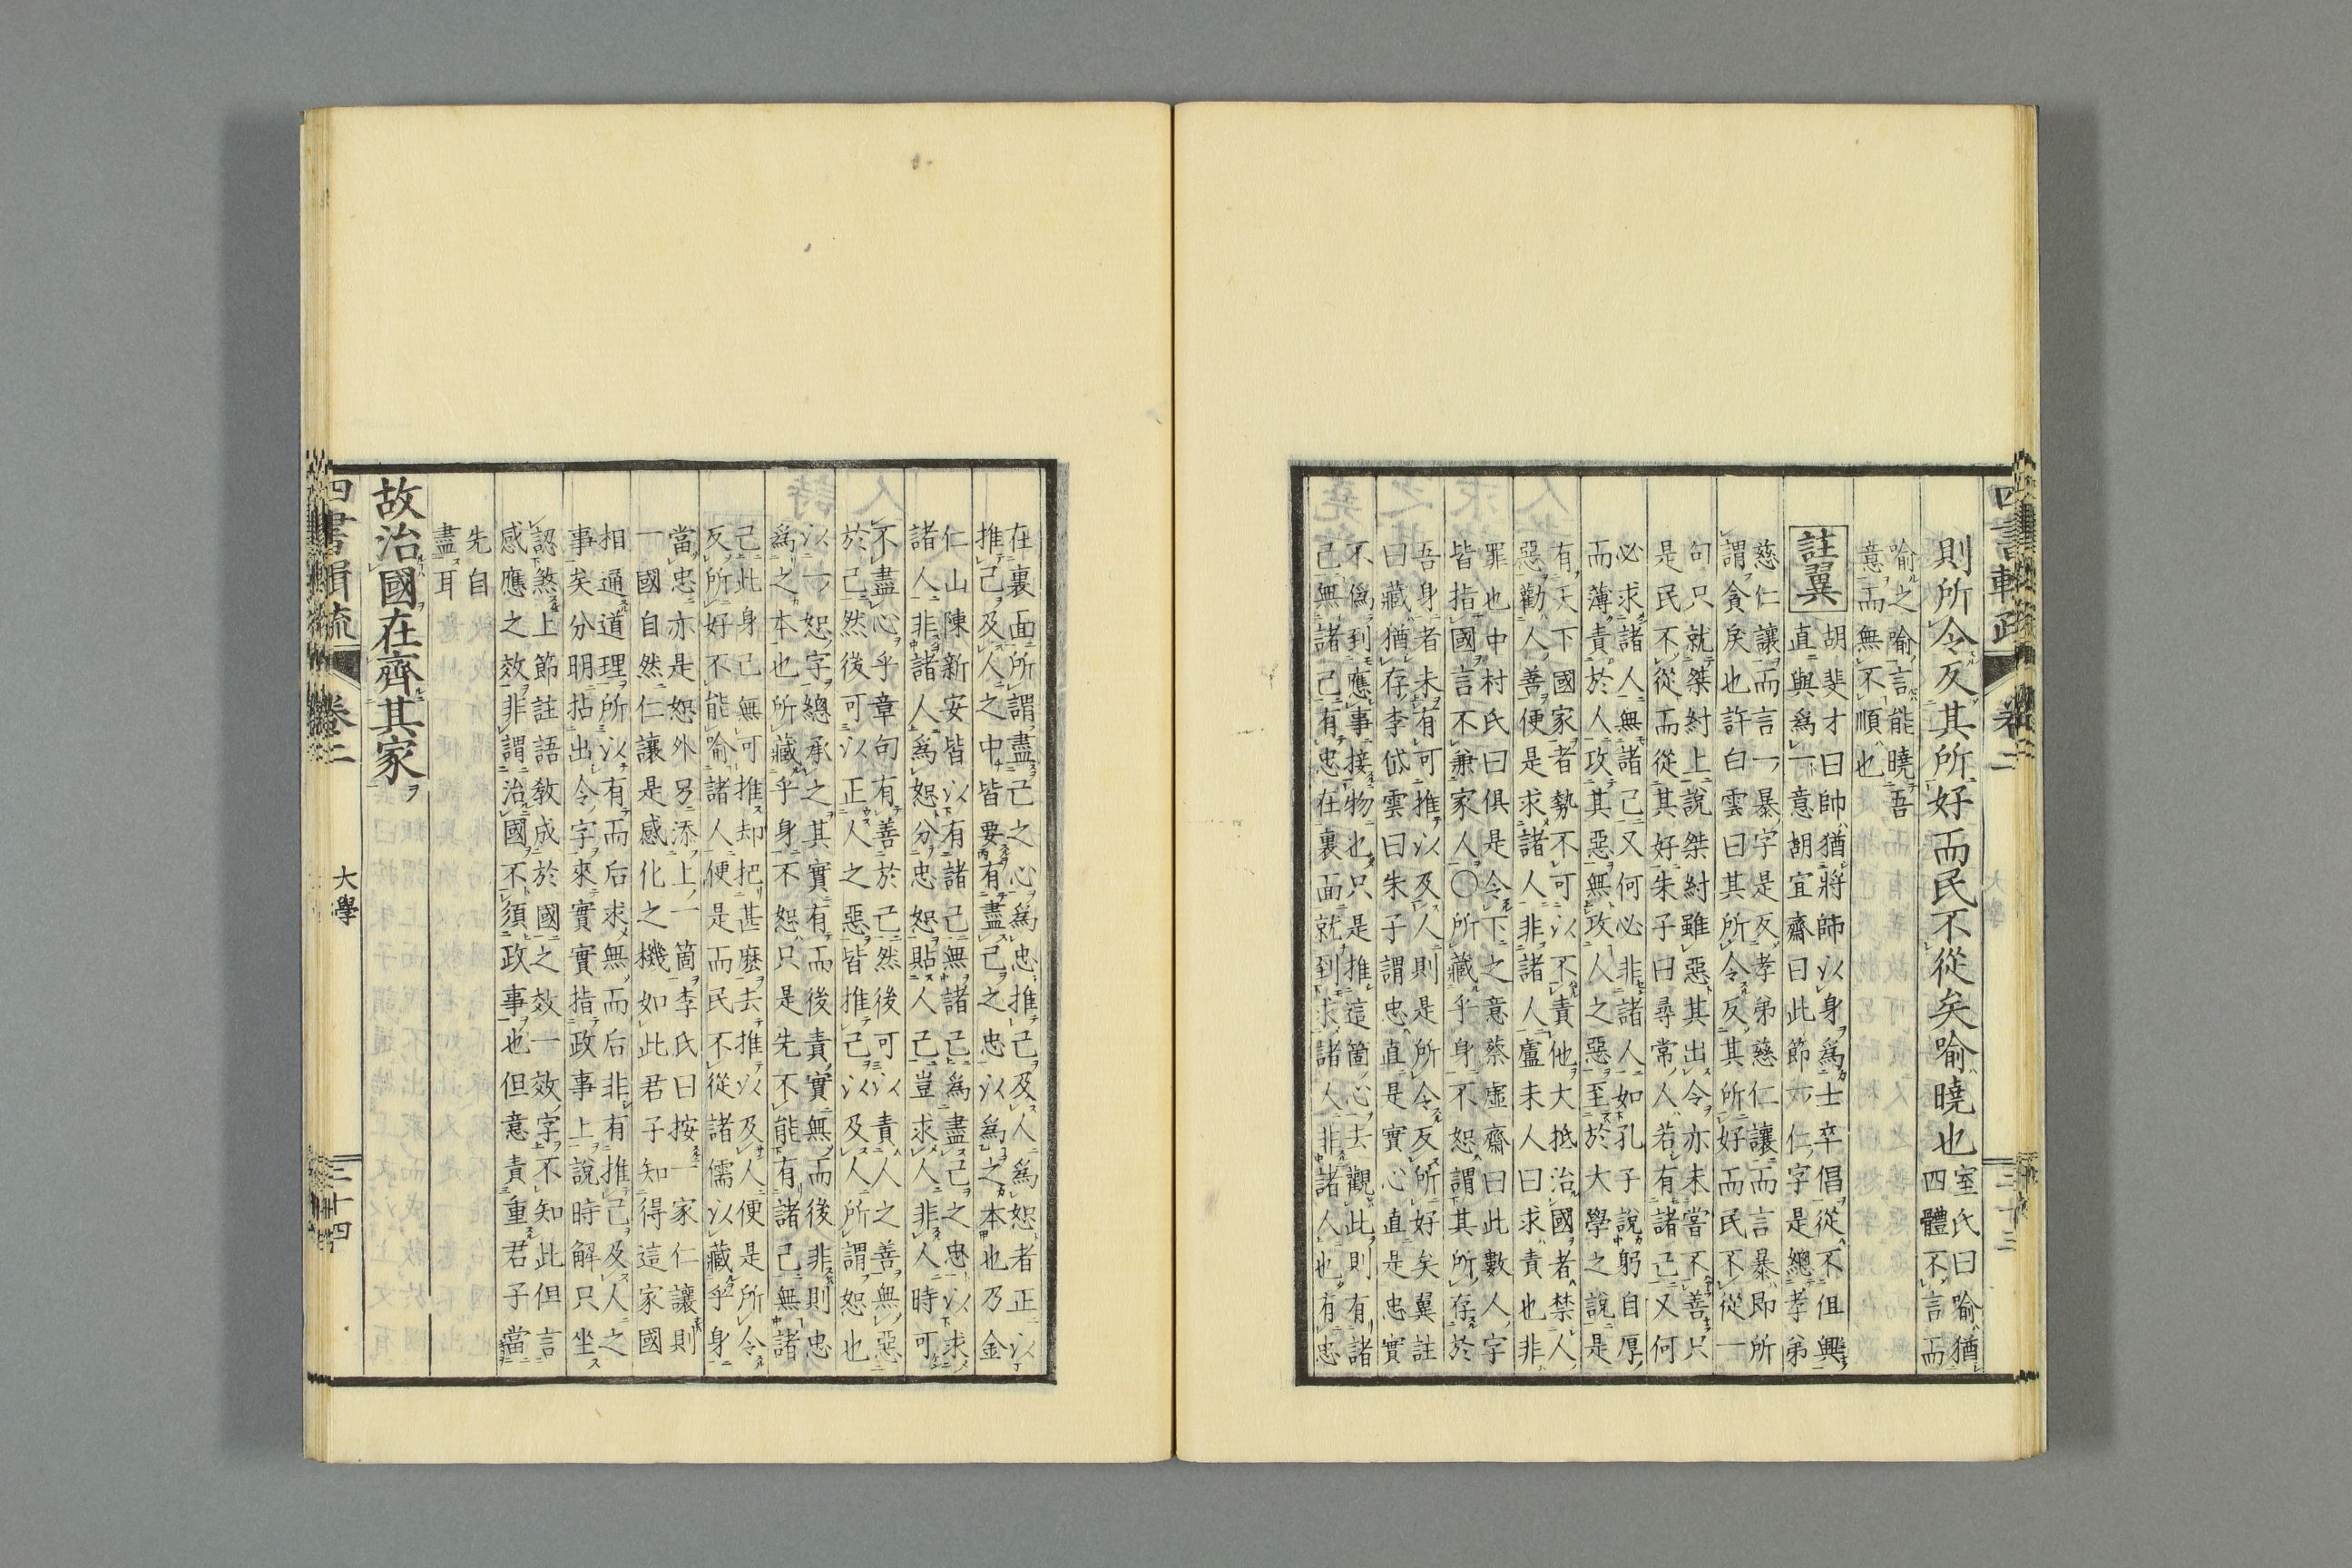 則所令反其所好而民不從矣喻曉也室氏曰喻猶
四體不言而
喻之喻言能曉吾
意而無不順也
註翼
胡斐才曰帥猶將帥以身爲士卒倡從不但興
直與爲一意胡宜齋曰此節二仁字是總孝弟
慈仁讓而言一暴字是反孝弟慈仁讓而言暴即所
謂貪戾也許白雲曰其所令反其所好而民不從一
句只就桀紂上說桀紂雖惡其出令亦未嘗不善只
是民不從而從其好朱子曰尋常人若有諸己又何
必求諸人無諸己又何必非諸人如孔子說躬自厚
而薄責於人攻其惡無攻人之惡至於大學之說是
有天下國家者勢不可以不責他大抵治國者禁人
惡勸人善便是求諸人非諸人盧未人曰求責也非
罪也中村氏曰俱是令下之意蔡虛齋曰此數人字
皆指國言不兼家人〇所藏乎身不恕謂其所存於
吾身者未有可推以及人則是所令反所好矣翼註
曰藏猶存李岱雲曰朱子謂忠直是實心直是忠實
不爲到應事接物也只是推這箇心去觀此則有諸
己無諸己有忠在裏面就到求諸人非諸人也有忠
在裏面所謂盡己之心爲忠推己及人爲恕者正以
推己及人之中皆要有盡己之忠以爲之本也乃金
仁山陳新安皆以有諸己無諸己爲盡己之忠以求
諸人非諸人爲恕分忠恕貼人己豈求人非人時可
不盡心乎章句有善於己然後可以責人之善無惡
於己然後可以正人之惡皆推己以及人所謂恕也
以一恕字總承之其實有而後責實無而後非則忠
爲之本也所藏乎身不恕只是先不能有諸己無諸
己此身己無可推却把甚麽去推以及人便是所令
反所好不能喻諸人便是而民不從諸儒以藏乎身
當忠亦是恕外另添上一箇李氏曰按一家仁讓則
一國自然仁讓是感化之機如此君子知得這家國
相通道理所以有而后求無而后非有推己及人之
事矣分明拈出令字來實實指政事上說時解只坐
認煞上節註語敎成於國之效一效字不知此但言
感應之效非謂治國不須政事也但意責重君子當
先自
盡耳
故治國在齊其家
四書輯疏
卷二
大學
三十四
三十三